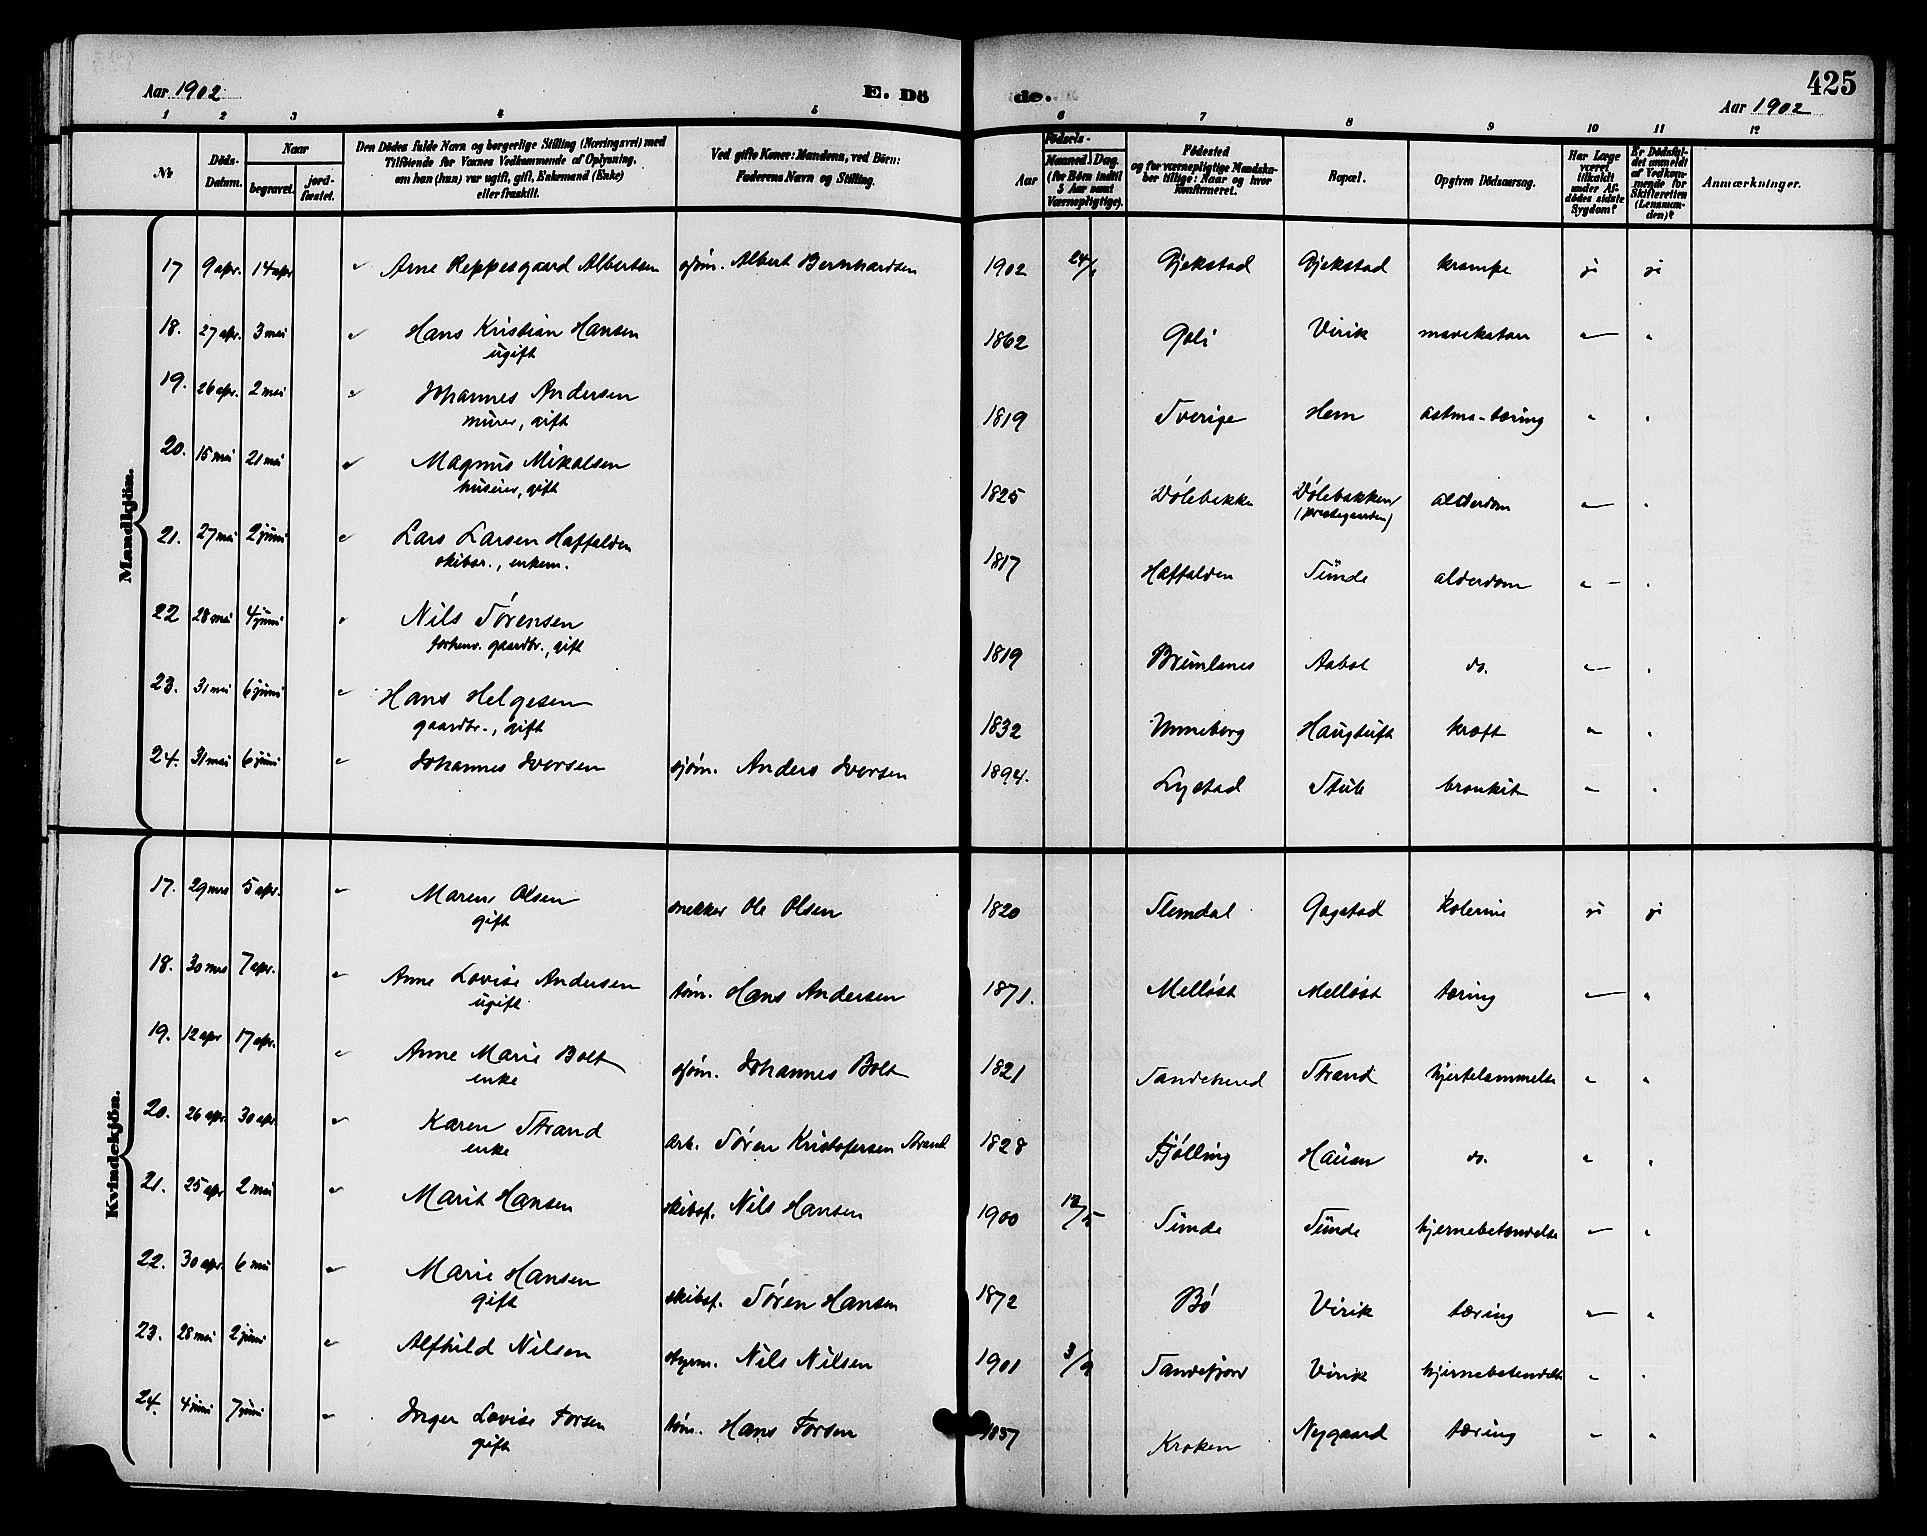 Aar 1902
E. Dö
de.
425
Aar 1902
1 2 3 4 5 6 7 8 9 10 11 12
No
Döds-Datum.
Naar
begravet.
jord-fæstet.
Den Dödes fulde Navn og borgerlige Stilling (Næringsvei) med
Tilföiende for Voxnes Vedkommende af Oplysning,
om han (hun) var ugift, gift, Enkemand (Enke)
eller fraskilt.
Ved gifte Koner: Mandens, ved Börn:
Faderens Navn og Stilling.
Födsels-
Aar
Maaned. Dag.
(for Börn indtil
5 Aar samt
Værnepligtige).
Födested
og for værnepligtige Mandska-
ber tillige: Naar og hvor
konfirmeret.
Bopæl.
Opgiven Dödsaarsag.
Har Læge
været
tilkaldt
under Af-
dödes sidste
Sygdom?
Er Dödsfal-
det anmeldt
af Vedkom-
mende for
Skifteretten
(Lensman-
den)?
Anmærkninger.
Mandkjön.
17 9 apr. 14 apr Arne Reppesgaard Albertsen sjøm. Albert Bernhardsen 1902 24/1 Gjekstad Gjekstad krampe ji ji
18. 27 apr. 3 mai Hans Kristian Hansen 1862 Goli Virik mavekatar
ugift
19. 26 apr. 2 mai Johannes Andersen 1819 Sverige Hem astma-tæring
murer, gift
20. 15 mai 21 mai Magnus Mikalsen 1825 Dølebakken alderdom
huseier, gift (prestegaarden)
21. 27 mai 2 juni Lars Larsen Haffalden 1817 Haffalden Sunde alderdom
skibsr., enkem.
22 28 mai 4 juni Nils Sørensen 1819 Brunlanes do.
forhenv. gaardbr., gift
23. 31 mai 6 juni Hans Helgesen 1832 Unneberg Haugtuft kræft
gaardbr., gift
24. 31 mai 6 juni Johannes Iversen sjøm. Anders Iversen 1894. Lystad Stub bronkit
Kvindekjön.
17. 29 mrs 5 apr. Maren Olsen snekker Ole Olsen 1820 Slemdal Gogstad kolerine ji ji
gift
18. 30 mrs 7 apr. Anne Lovise Andersen tøm. Hans Andersen 1871. Melløst Melløst tæring
ugift
19. 12 apr 17 apr. Anne Marie Bolt sjøm. Johannes Bolt 1821 Sandeherred Strand hjertelammelse
enke
20. 26 apr. 30 apr. Karen Strand arb. Søren Kristofersen Strand 1828 Tjølling Hauan do.
enke
21. 25 apr 2 mai Marit Hansen skibsf. Nils Hansen 1900 12/5 Sunde Sunde hjernebetændelse
22. 30 apr. 6 mai Marie Hansen skibsf. Søren Hansen 1872 Bø Virik tæring
gift
23. 28 mai 2 juni Alfhild Nilsen styrm. Nils Nilsen 1901 3/9 Sandefjord Virik hjernebetændelse
24. 4 juni 7 juni Inger Lovise Forsen tøm. Hans Forsen 1857 Kroken Nygaard tæring
gift